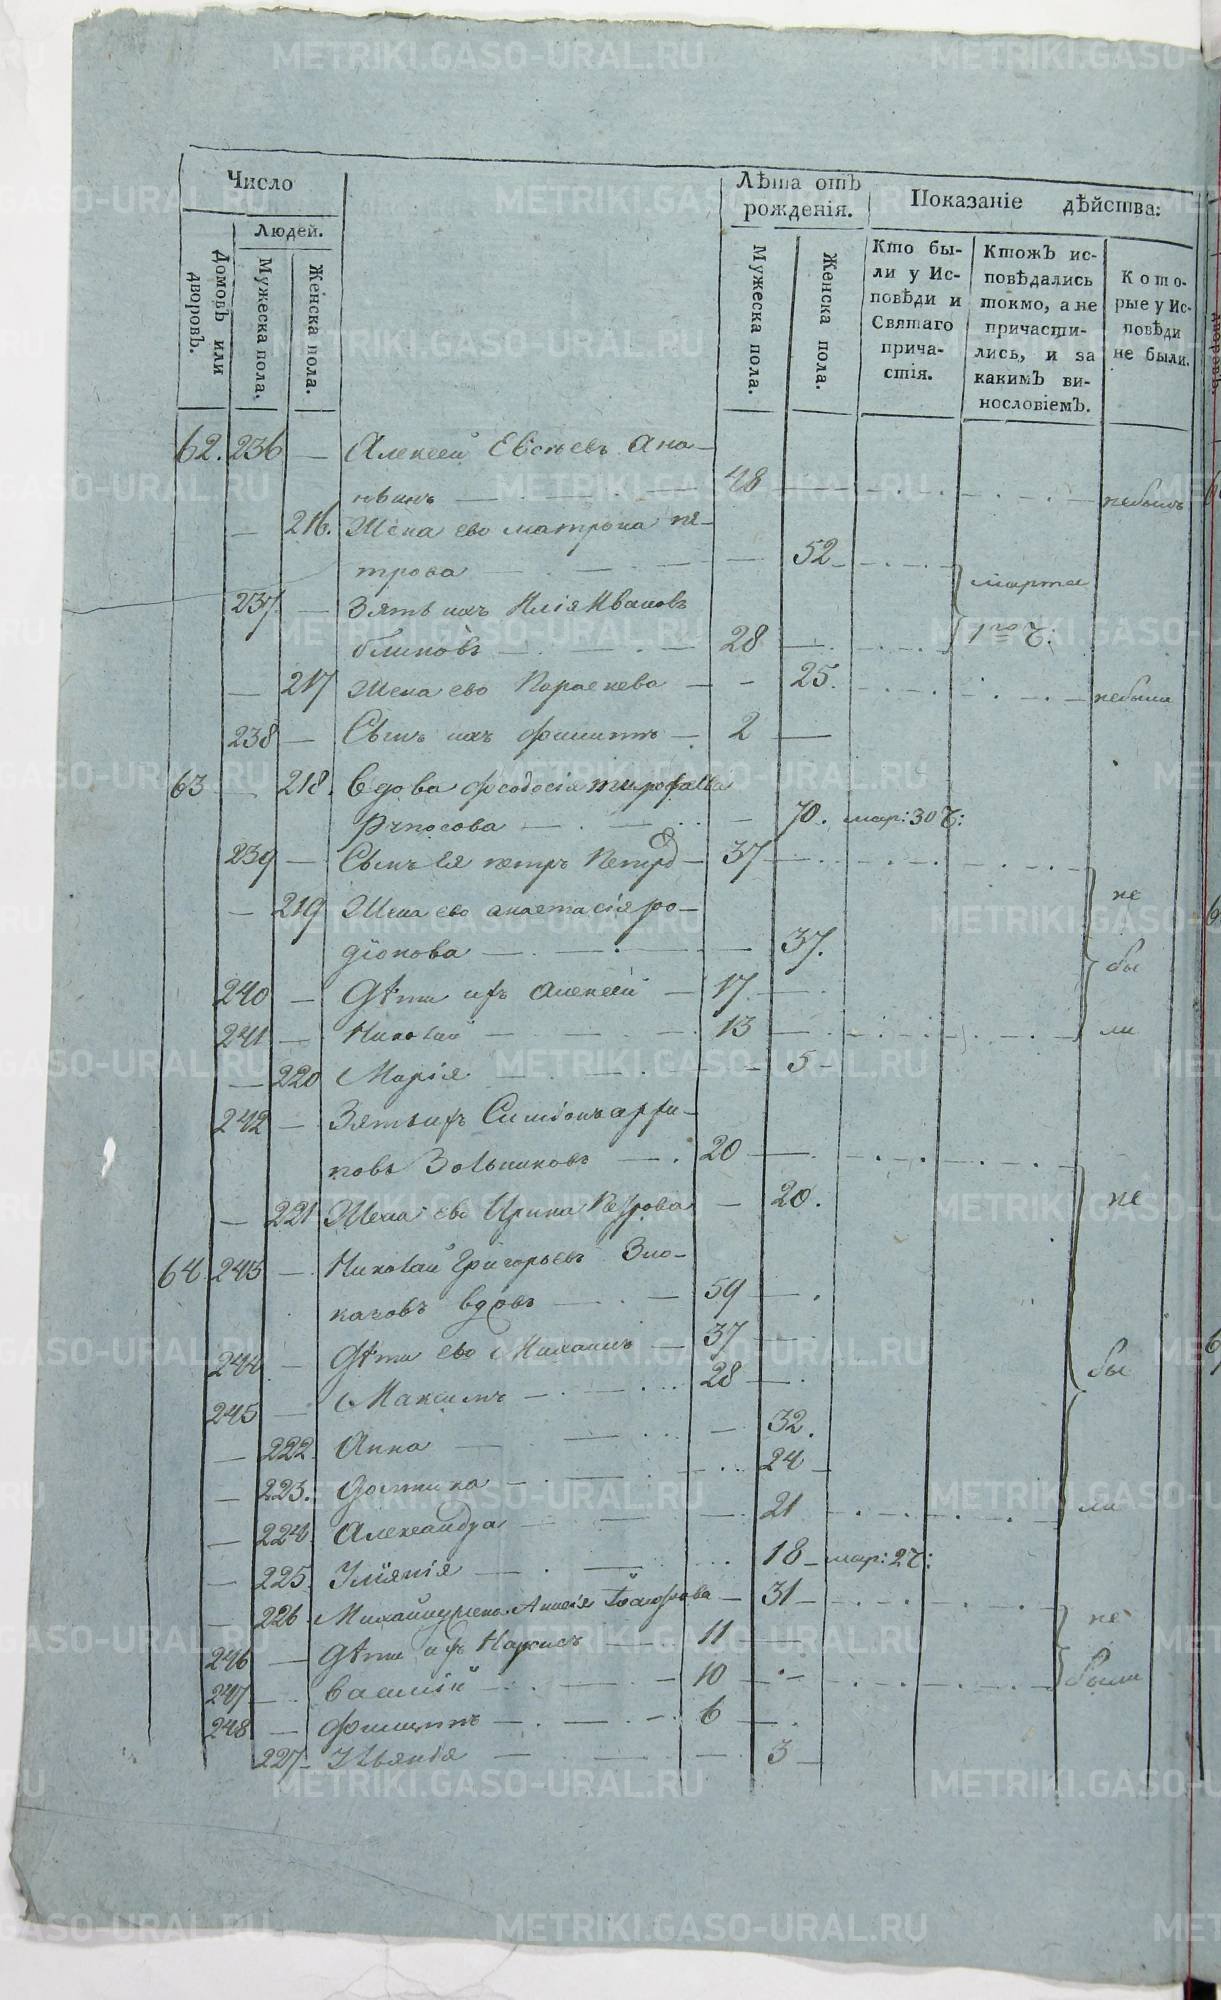 Число
Лѣта отъ рожденія.
Показаніе дѣйства:
Людей.
Домовъ или дворовъ.
Мужеска пола.
Женска пола.
Мужеска пола.
Женска пола.
Кто бы-
ли у Ис-
повѣди и
Святаго
прича-
стія.
Ктожъ ис-
повѣдались
токмо, а не
причасти-
лись, и за
какимъ ви-
нословіемъ.
Кото-
рые у Ис-
повѣди
не были.
62. 236 — Алексей Евсѣевъ Ана-
нѣинъ — 48 небылъ
— 216. Жена ево матрона пе-
трова — 52
марта
237 — Зять ихъ Илія Ивановъ
блиновъ — 28 — 1го Ч:
— 217 Жена ево Параскева — 25. небыла
238 — Сынъ ихъ филиппъ — 2 —
63 — 218. Вдова феодосія
— 70. мар: 30 Ч:
239 — Сынъ Ея петръ Петро — 37 —
— 219 Жена ево анастасія ро-
діонова — 37.
не
бы
ли
240 — Дѣти ихъ Алексей — 17 —
241 — Николай — 13 —
— 220 Марія — 5 —
242 — Зять ихъ Симіонъ
повъ — 20 —
— 221 Жена ево Ирина Петрова — 20.
не
64 243 — Николай Григорьевъ Зло-
казовъ вдовъ — 59 —
244 — Дѣти ево Михаилъ — 37
245 — Максимъ — 28 —
бы
— 222. Анна — 32.
— 223. — 24 —
— 224. Александра — 21
ли
— 225. Уліянія — 18 — мар: 2 Ч:
— 226 Михайлы жена — 31 —
не
были
246 — Дѣти ихъ — 11 —
247 — Василій — 10 —
248 — Филиппъ — 6 —
227 — Ульянія — 3 —
METRIKI.GASO-URAL.RU